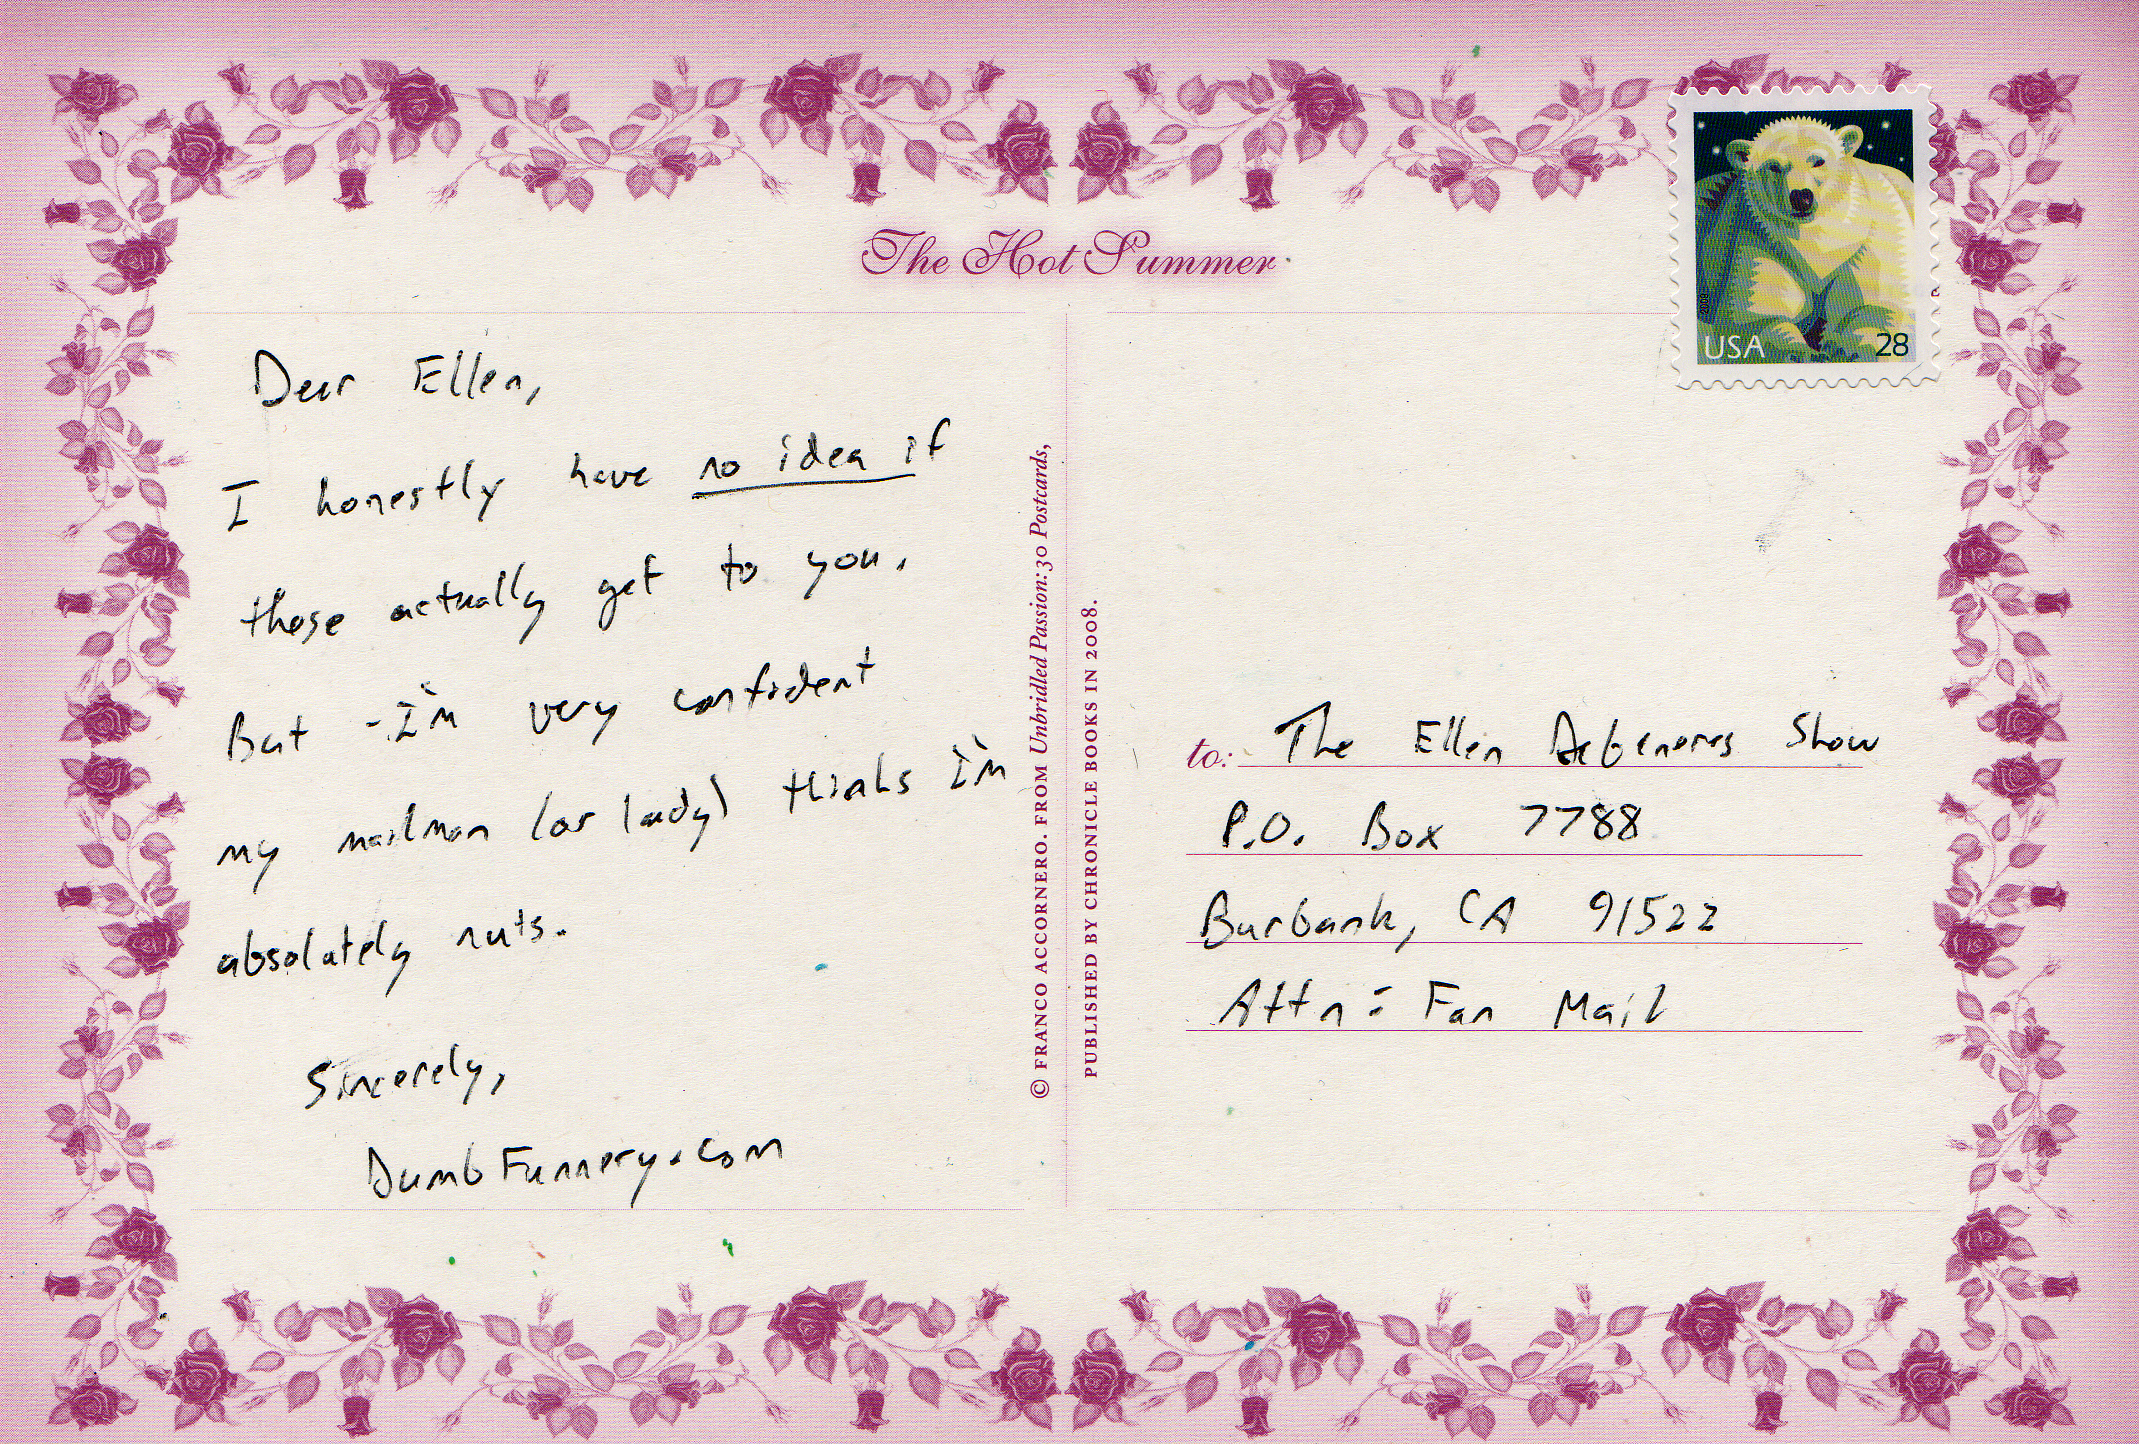 The Hot Summer
USA 28
Dear Ellen,
I honestly have no idea if
these actually get to you.
But - I'm very confident
my mailman (or lady) thinks I'm
absolutely nuts.
Sincerely,
DumbFunnery.com
© FRANCO ACCORNERO. FROM Unbridled Passion: 30 Postcards,
PUBLISHED BY CHRONICLE BOOKS IN 2008.
to: The Ellen DeGeneres Show
P.O. Box 7788
Burbank, CA 91522
Attn: Fan Mail